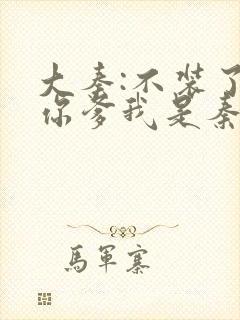 大秦:不装了
你爹我是秦
馬軍寨